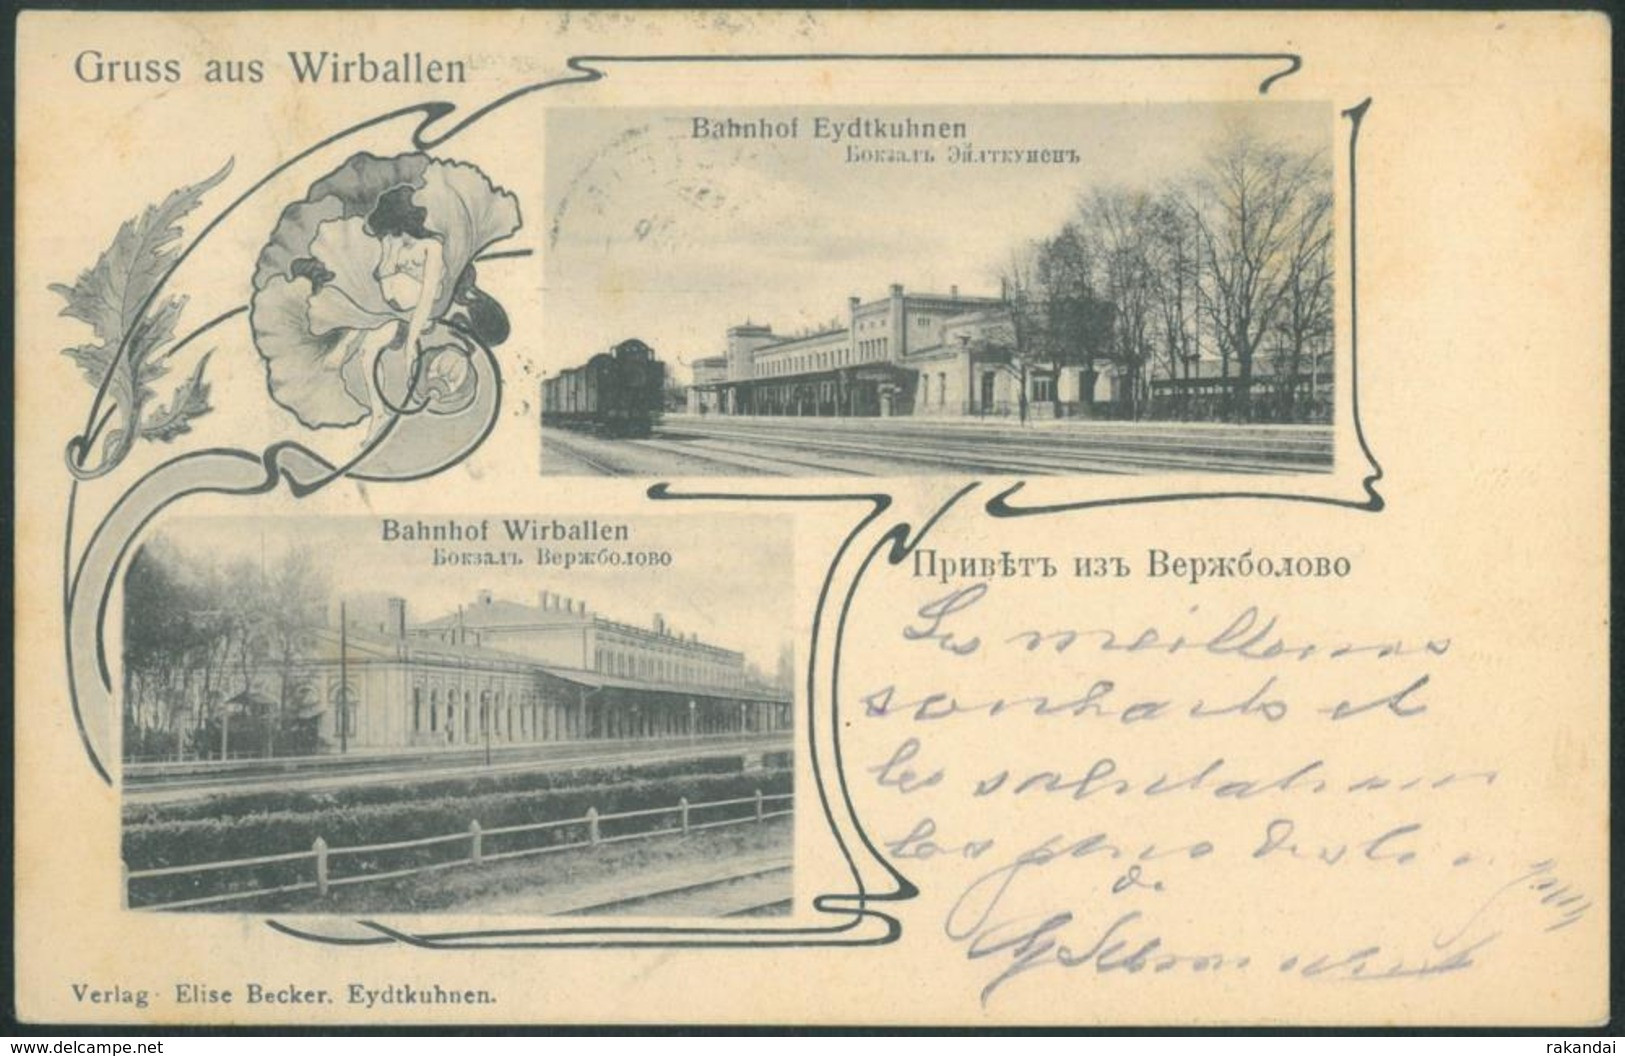 Gruss aus Wirballen
Bahnhof Eydtkuhnen
Вокзалъ Эйдткуненъ
Bahnhof Wirballen
Вокзалъ Вержболово
Привѣтъ изъ Вержболово
Les meilleures
souhaits et
les salutations
les plus
de
Verlag Elise Becker. Eydtkuhnen.
delcampe.net
rakandai